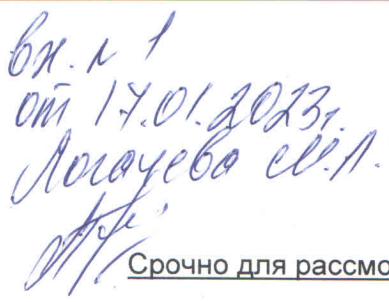 вх. № 1
от 17.01.2023г.
Логачева М.Л.
Срочно для рассмо